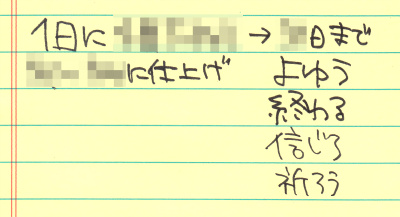 1日に → 日まで
に仕上げ よゆう
終わる
信じろ
祈ろう